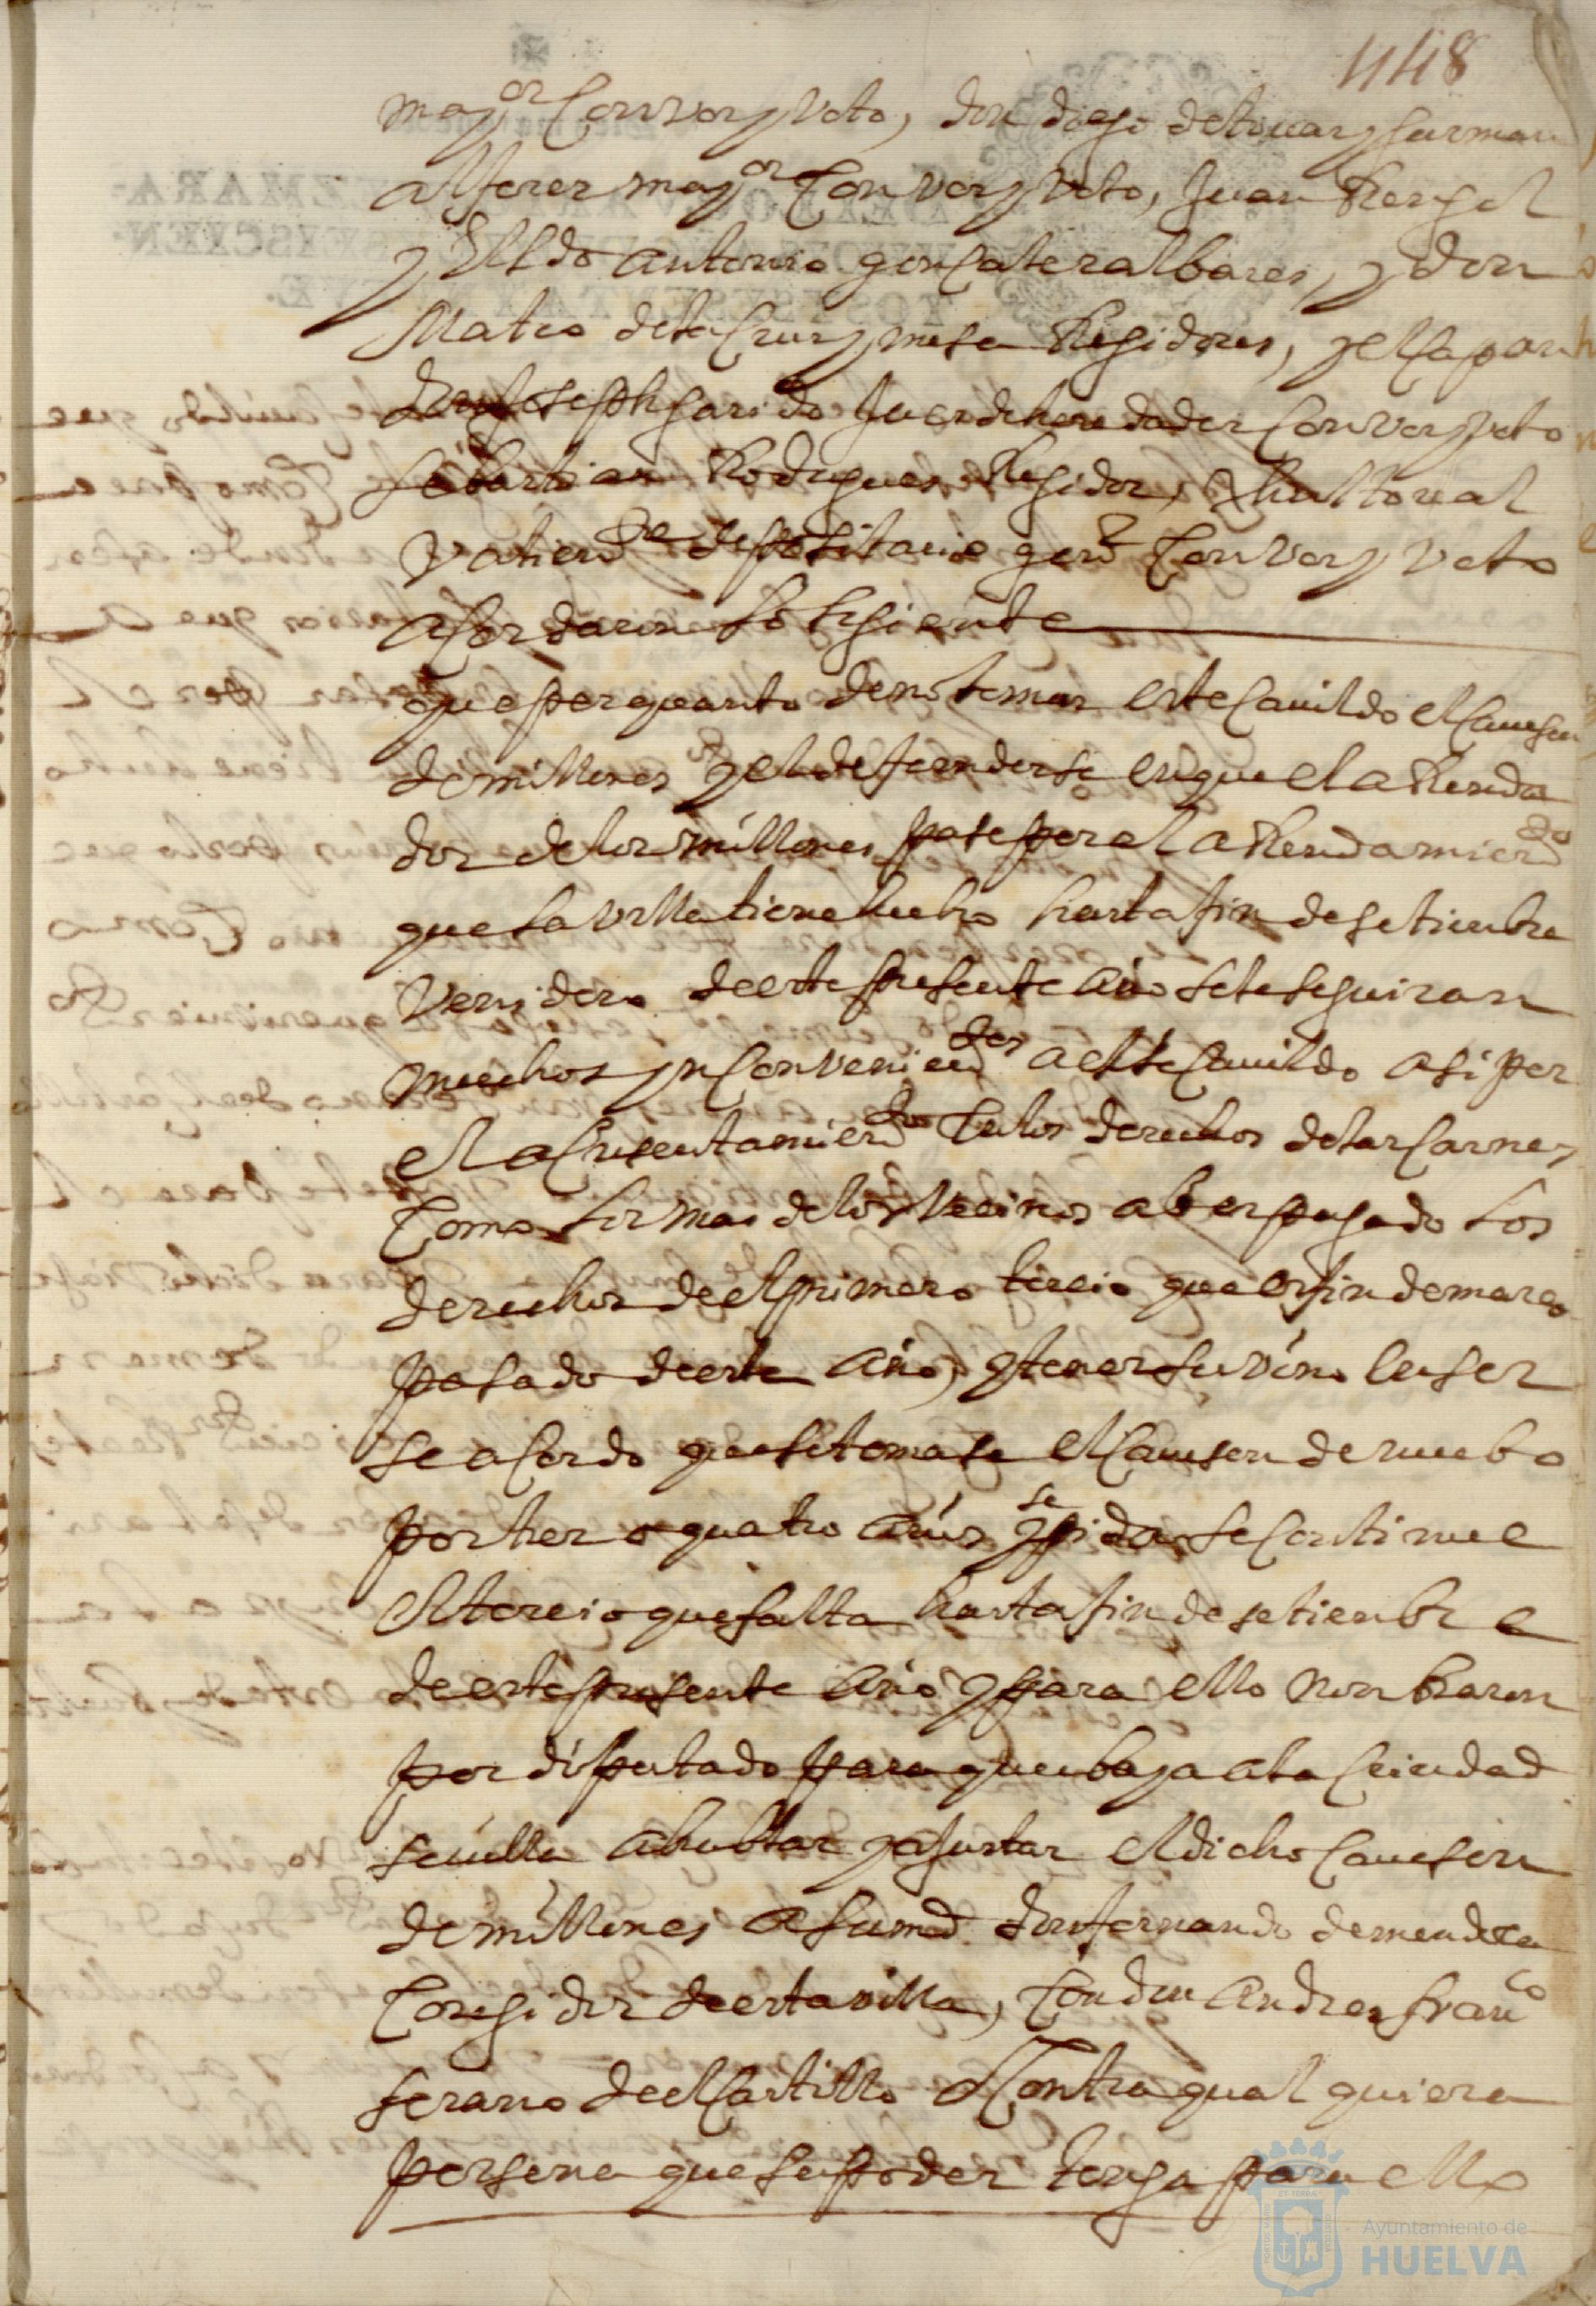 448
mayor Con voz y voto, don diego de touar y gusman
alferez mayor Con voz y voto, Juan Rengel
y El Ldo antonio gonsalez albares, y don
Mateo de la Cruz y mesa Regidores, y el Capan
don Joseph garido Juez de heredades Con voz y voto
sebastian Rodrigues Regidor,
depositario genl Con voz y voto
acordaron lo sigiente
que por quanto de no tomar este Cauildo el Caueson
de millones y el defenderse en que el a Renda
dor de los millones pase por el a Rendamiendo
que la villa tiene hecho hasta fin de setienbre
venidero de este presente año se le seguiran
muchos ynConveniendes a este Cauildo asi por
el acresentamiendo en los derechos de las Carnes,
Como los mas de los vecinos aber pagado los
derechos de el primero tercio que es fin de março
pasado de este año, y tener su vino en ser
se acordo que se tomase el Caueson de nuebo
por tres o quatro años y se pida se Continue
el tercio que falta hasta fin de setienbre
de este presente año y para ello nonbraron
por diputado para que baya a la Ciudad
seuilla a hablar y ajustar el dicho Caueson
de millones a su md don fernando de mendoca
Coregidor de esta villa, Con don Andres franco
serano de el Castillo o Contra qual quiera
persona que su poder tenga para ello
Ayuntamiento de
HUELVA